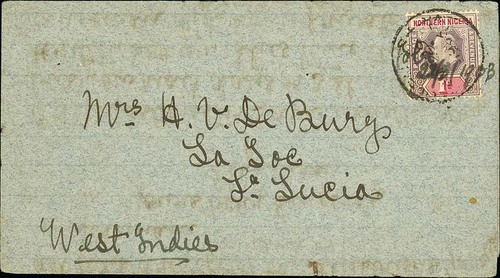 NORTHERN NIGERIA
1d
Mrs H. V. De Burgh
La Toc
St. Lucia
West Indies